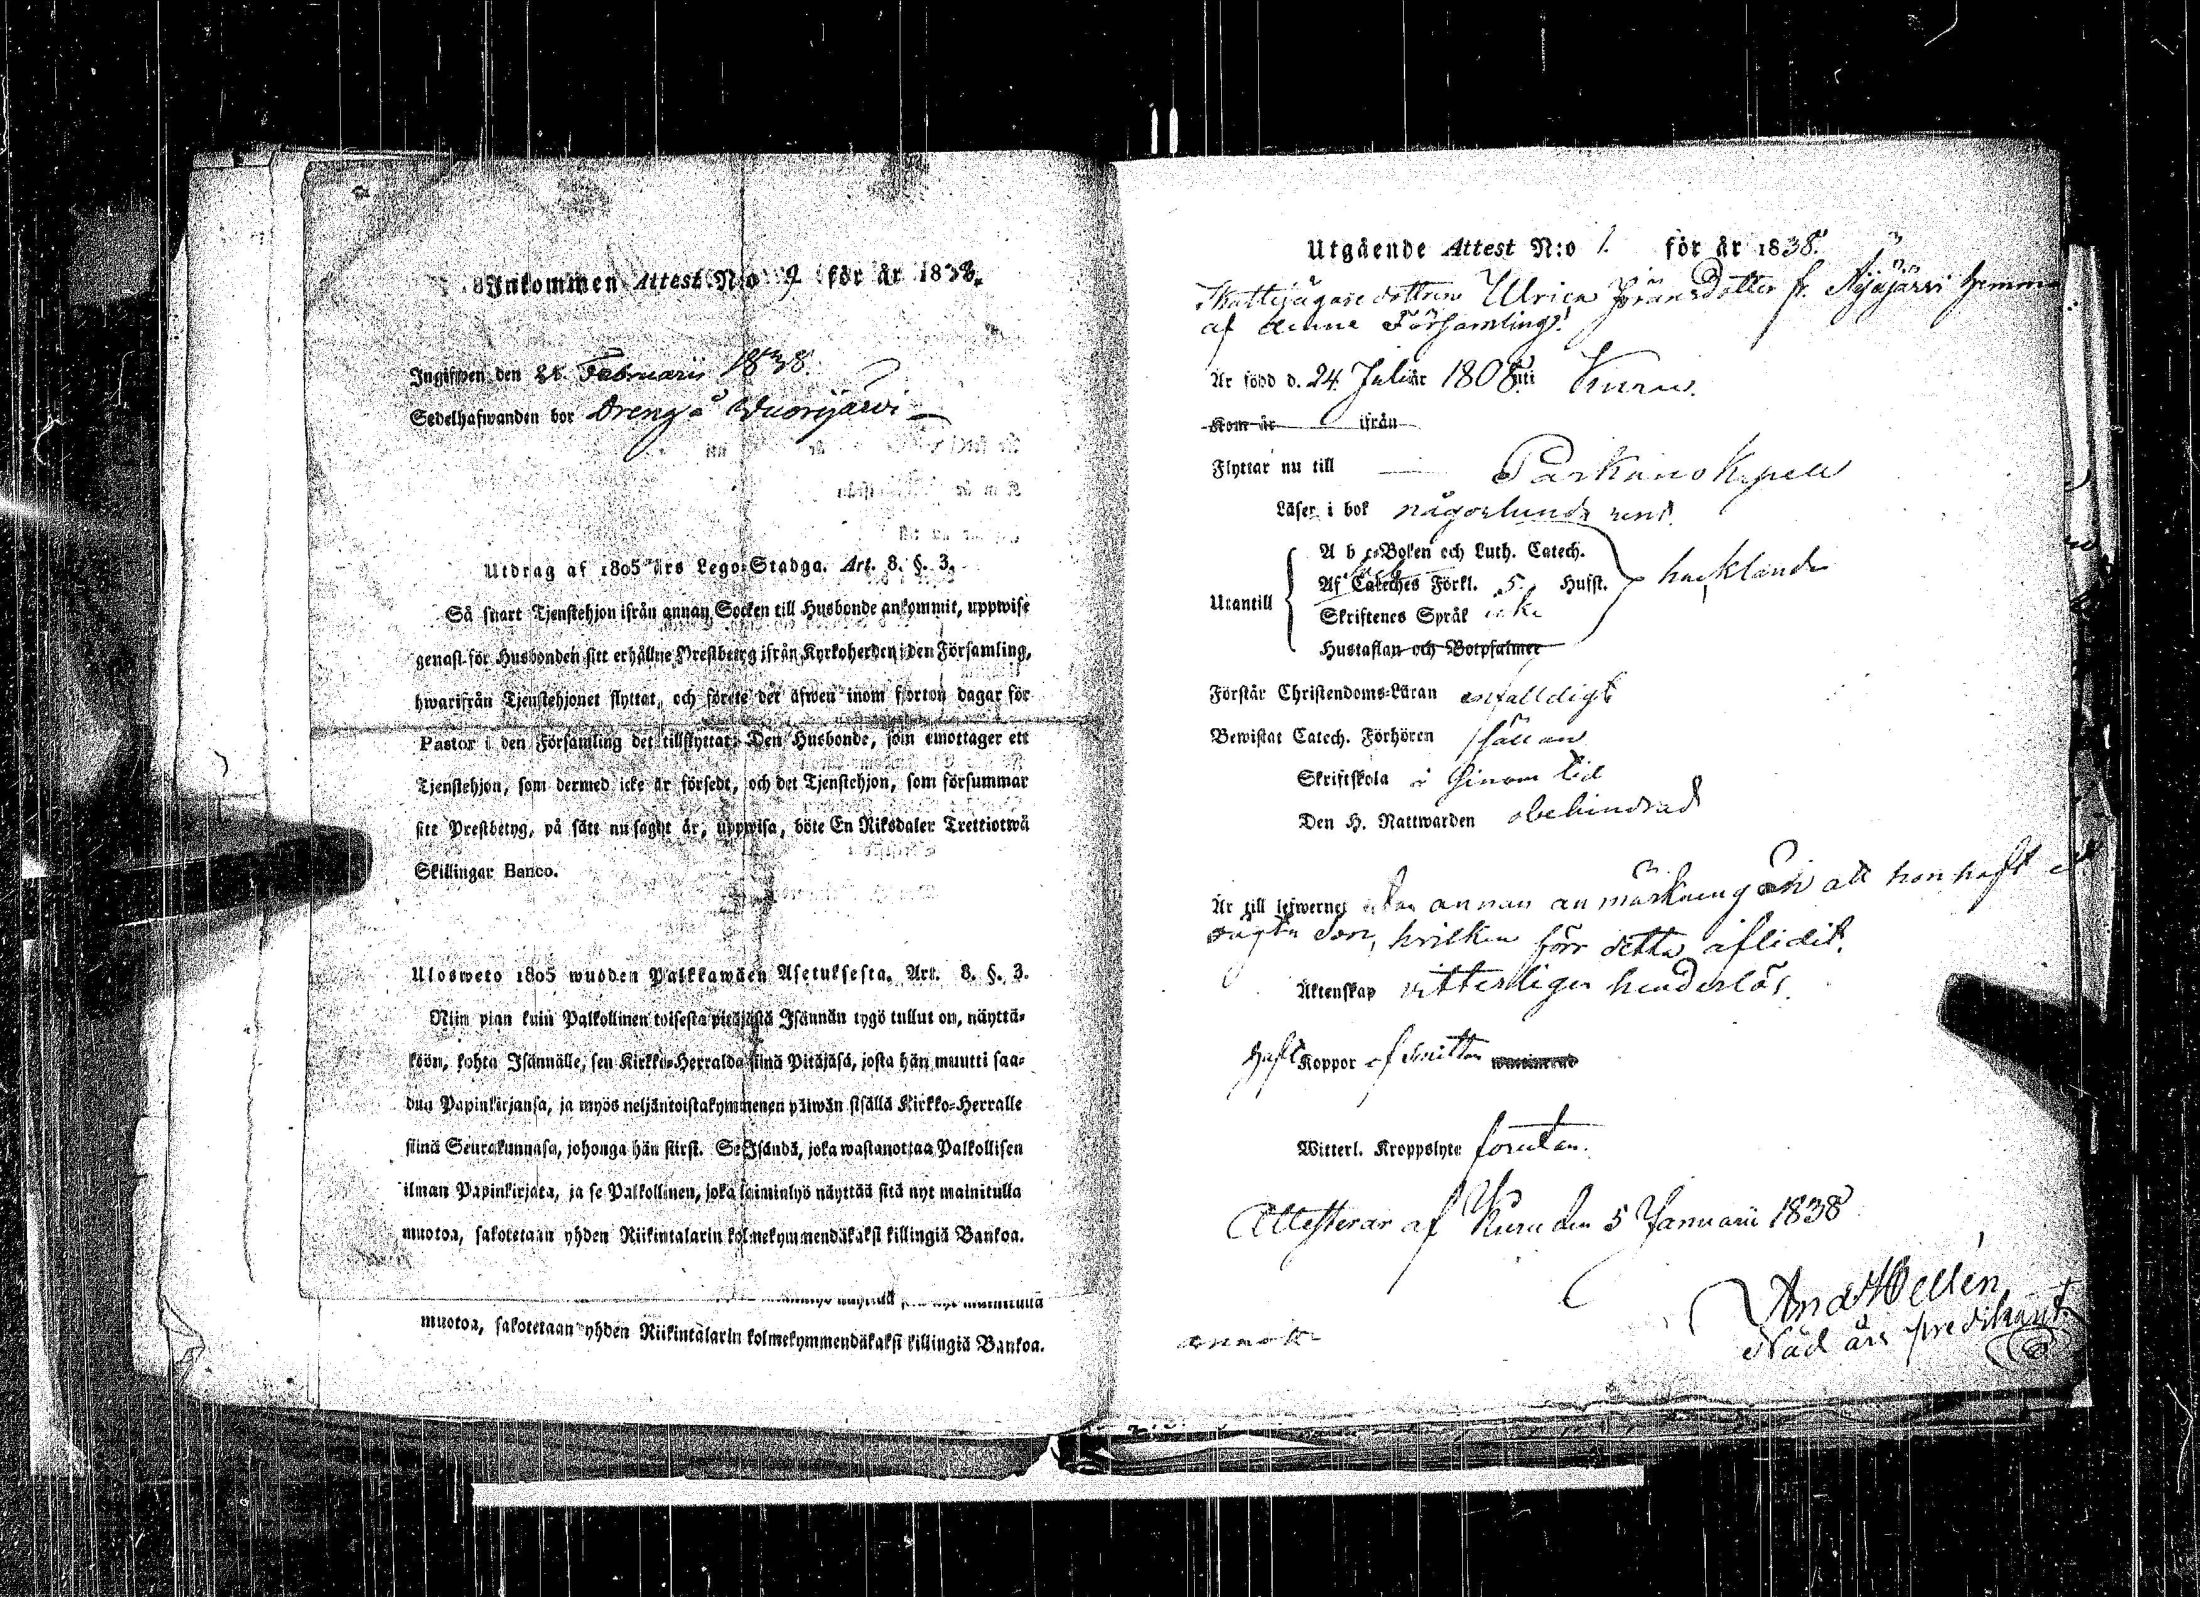 Inkommen Attest N:o 9 för år 1838.
Ingifwen den Februarii 1838.
Sedelhafwanden bor Dreng å Wuorijärvi
Utdrag af 1805 års Lego-Stadga. Art. 8. §. 3.
Så snart Tjenstehjon ifrån annan Socken till Husbonde ankommit, uppwise
genast för Husbonden sitt erhållne Prestbetyg ifrån Kyrkoherden i den Församling,
hwarifrån Tjenstehjonet flyttat, och förete det äfwen inom fjorton dagar för
Pastor i den Församling det tillflyttat. Den Husbonde, som emottager ett
Tjenstehjon, som dermed icke är försedt, och det Tjenstehjon, som försummar
sitt Prestbetyg, på sätt nu sagdt är, uppwisa, böte En Riksdaler Trettiotwå
Skillingar Banco.
Ulosweto 1805 wuoden Palkkawäen Asetuksesta. Art. 8. §. 3.
Niin pian kuin Palkollinen toisesta pitäjästä Isännän tygö tullut on, näyttä-
köön, kohta Isännälle, sen Kirkko-Herralda siinä Pitäjäsä, josta hän muutti saa-
dun Papinkirjansa, ja myös neljäntoistakymmenen päiwän sisällä Kirkko-Herralle
siinä Seurakunnasa, johonga hän siirsi. Se Isändä, joka wastanottaa Palkollisen
ilman Papinkirjata, ja se Palkollinen, joka laiminlyö näyttää sitä nyt mainitulla
muotoa, sakotetaan yhden Riikintalarin kolmekymmendäkaksi killingiä Bankoa.
muotoa, sakotetaan yhden Riikintalarin kolmekymmendäkaksi killingiä Bankoa.
Utgående Attest N:o 1. för år 1838.
Skatteägare dottren Ulrica Jöransdotter fr. hemman
af denne Församling!
Är född d. 24 Julii år 1808 uti Kuru.
Kom år ifrån
Flyttar nu till Parkano Kapell
Läser i bok någorlunda rent.
Utantill
A b c-Boken och Luth. Catech.
Af Cateches Förkl. 5 Hufst.
Skriftenes Språk icke
Hustaflan och Botpsalmer
hacklande
Förstår Christendoms-Läran enfalldigt
Bewistat Catech. Förhören sällan
Skriftskola i sinom tid
Den H. Nattwarden obehindrad
Är till lefwernet utan annan anmärkning än att hon haft
oägta Son, hvilken förr detta aflidit.
Äktenskap vitterligen hinderlös.
Haft Koppor af smittan
Witterl. Kroppslyte förutan.
Attesterar af Kuru den 5 Januarii 1838
And Hellén
Nåd års predikant